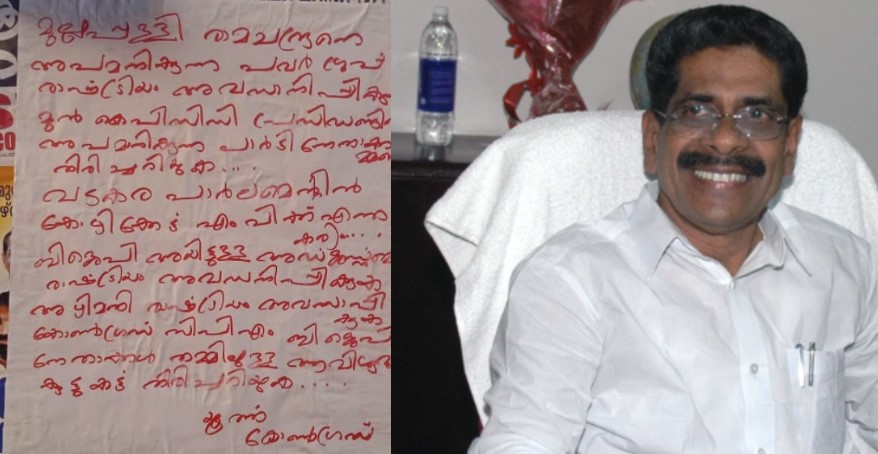 മുല്ലപ്പള്ളി രാമചന്ദ്രനെ
അപമനിക്കുന്ന പവർ ഗ്രൂപ്പ്
രാഷ്ട്രിയം അവസാനിപ്പിക്കുക
മുൻ കെപിസിസി പ്രസിഡണ്ടിനെ
അപമനിക്കുന്ന പാർടി നേതാക്കൻ
തിരിച്ചറിയുക....
വടകര പാർലമെന്റിൽ
കോഴിക്കോട് എംപിക്ക് എന്താ
കാര്യം....
ബിജെപി ആയിട്ടുള്ള
രാഷ്ട്രിയം അവസാനിപ്പിക്കുക
അഴിമതി രാഷ്ട്രിയം അവസാനിപ്പി
ക്കുക
കോൺഗ്രസ് സിപിഎം ബിജെപി
നേതാക്കൾ തമ്മിലുള്ള അവിശുദ്ധ
കൂട്ടുകെട്ട് തിരിച്ചറിയുക....
കോൺഗ്രസ്